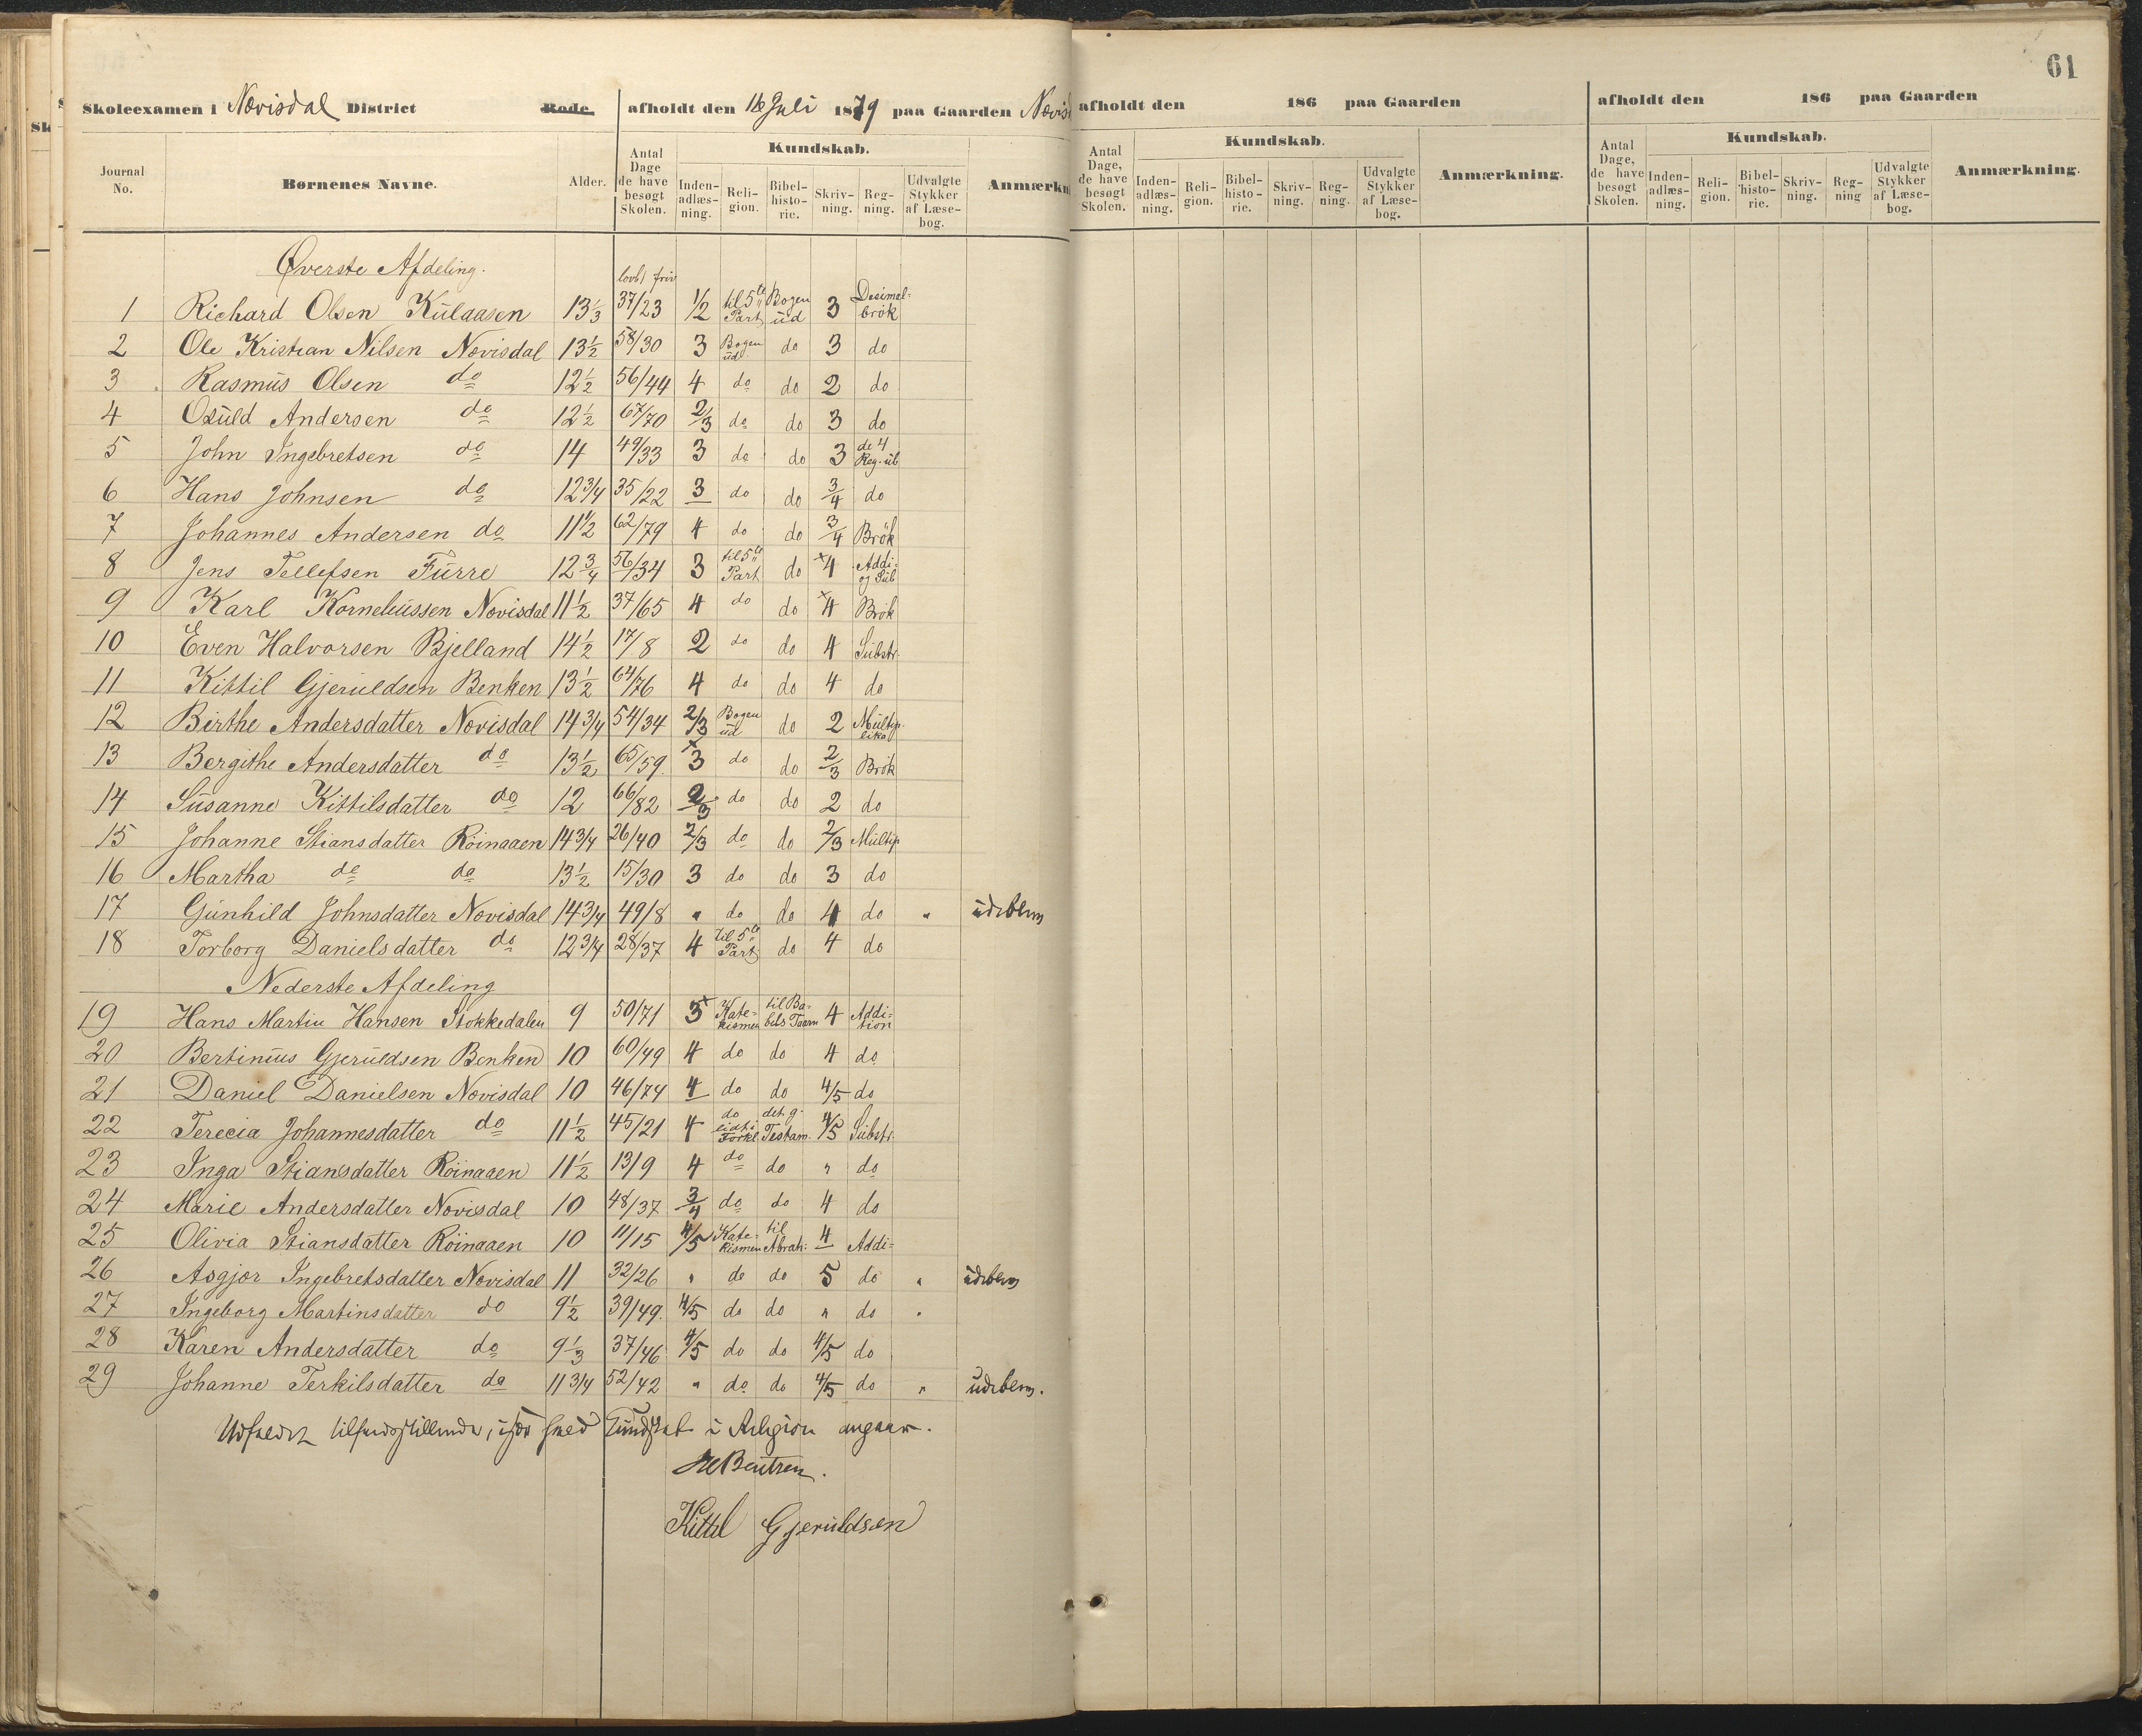 Skoleexamen i Novisdal District Rode afholdt den 16 Juli 1879 paa Gaarden Novisd
Journal No. Børnenes Navne. Alder. Antal Dage de have besøgt Skolen. Kundskab. Inden-adlæs-ning. Reli-gion. Bibel-histo-rie. Skriv-ning. Reg-ning. Udvalgte Stykker af Læse-bog. Anmærkn
Øverste Afdeling.
lovb/ friv
1 Richard Olsen Kulaasen 13 1/3 37/23 1/2 til 5te Part Bogen ud 3 Desimel-brök
2 Ole Kristian Nilsen Novisdal 13 1/2 58/30 3 Bogen ud do 3 do
3 Rasmus Olsen do 12 1/2 56/44 4 do do 2 do
4 Osuld Andersen do 12 1/2 67/70 2/3 do do 3 do
5 John Ingebretsen do 14 49/33 3 do do 3 de 4 Reg. ub
6 Hans Johnsen do 12 3/4 35/22 3 do do 3/4 do
7 Johannes Andersen do 11 1/2 62/79 4 do do 3/4 Brök
8 Jens Tellefsen Furre 12 3/4 56/34 3 til 5te Part do 4 Addi- og Sub
9 Karl Korneliussen Novisdal 11 1/2 37/65 4 do do 4 Brök
10 Even Halvorsen Bjelland 14 1/2 17/8 2 do do 4 Substr.
11 Kittil Gjeruldsen Benken 13 1/2 64/76 4 do do 4 do
12 Birthe Andersdatter Novisdal 14 3/4 54/34 2/3 Bogen ud do 2 Multip-lika
13 Bergithe Andersdatter do 13 1/2 65/59 3 do do 2/3 Brök
14 Susanne Kittilsdatter do 12 66/82 2/3 do do 2 do
15 Johanne Stiansdatter Röinaaen 14 3/4 26/40 2/3 do do 2/3 Multip
16 Martha do do 13 1/2 15/30 3 do do 3 do
17 Gunhild Johnsdatter Novisdal 14 3/4 49/8 " do do 4 do " udebl.
18 Torborg Danielsdatter do 12 3/4 28/37 4 til 5te Part do 4 do
Nederste Afdeling
19 Hans Martin Hansen Stokkedalen 9 50/71 3 Kate-kismen til Ba-bels Taarn 4 Addi-tion
20 Bertinius Gjeruldsen Benken 10 60/49 4 do do 4 do
21 Daniel Danielsen Novisdal 10 46/74 4 do do 4/5 do
22 Terecia Johannesdatter do 11 1/2 45/21 4 do lidt i Forkl det g. Testam. 4/5 Substr.
23 Inga Stiansdatter Röinaaen 11 1/2 13/9 4 do do " do
24 Marie Andersdatter Novisdal 10 48/37 3/4 do do 4 do
25 Olivia Stiansdatter Röinaaen 10 11/15 4/5 Kate-kismen til Abrah: 4 Addi-
26 Asgjor Ingebretsdatter Novisdal 11 32/26 " do do 5 do " udebl.
27 Ingeborg Martinsdatter do 9 1/2 39/49 4/5 do do " do "
28 Karen Andersdatter do 9 1/3 37/46 4/5 do do 4/5 do
29 Johanne Terkilsdatter do 11 3/4 52/42 " do do 4/5 do " udebl.
Udfaldet tilfredsstillende, især hvad Kundskab i Religion angaar.
Bentzen.
Kittil Gjeruldsen
61
afholdt den 186 paa Gaarden
Antal Dage, de have besøgt Skolen. Kundskab. Inden-adlæs-ning. Reli-gion. Bibel-histo-rie. Skriv-ning. Reg-ning. Udvalgte Stykker af Læse-bog. Anmærkning.
afholdt den 186 paa Gaarden
Antal Dage, de have besøgt Skolen. Kundskab. Inden-adlæs-ning. Reli-gion. Bibel-histo-rie. Skriv-ning. Reg-ning Udvalgte Stykker af Læse-bog. Anmærkning.